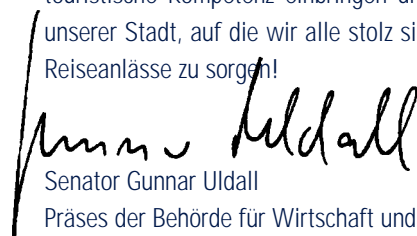 touristische Kompetenz einbringen u
unserer Stadt, auf die wir alle stolz si
Reiseanlässe zu sorgen!
Gunnar Uldall
Senator Gunnar Uldall
Präses der Behörde für Wirtschaft und